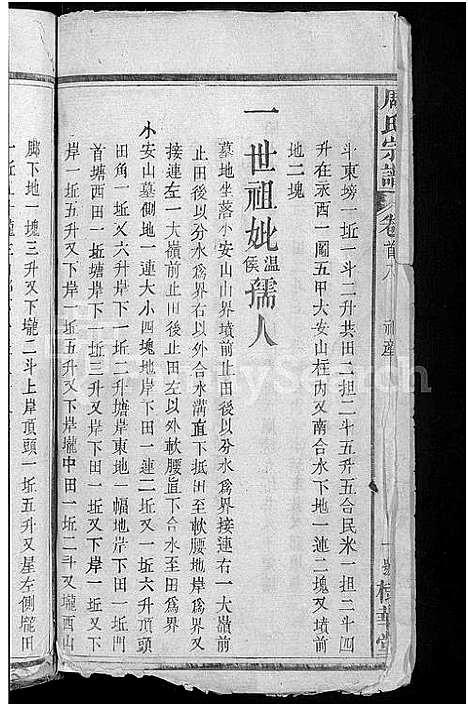 周氏宗譜 卷首 祠產
斗東塝一坵一斗二升共田二担二斗五升五合民米一担三斗四
升在汞西一圖五甲大安山柱內又南合水下地一連二塊又墳前
地二塊
一世祖妣溫侯孺人
墓地坐落小安山山界墳前止田後以分水為界接連右一大嶺前
止田後以分水為界右以外合水溝直下抵田至軟腰地岸為界
接連左一大嶺前止田後止田左以外軟腰直下合水至田為界
小安山墓側地一連大小四塊地岸下田一連二坵六升頂頭
田角一坵又下岸一坵二升塘岸東地一幅地岸下田一坵門
首塘西田一坵塘岸下田一坵三升又下岸一坵又下
岸一坵五升又下岸一坵又下岸壠中田一坵二斗又壠西山
脚下地一塊三升又下壠二斗上岸頂頭一坵五升又星左側壠田